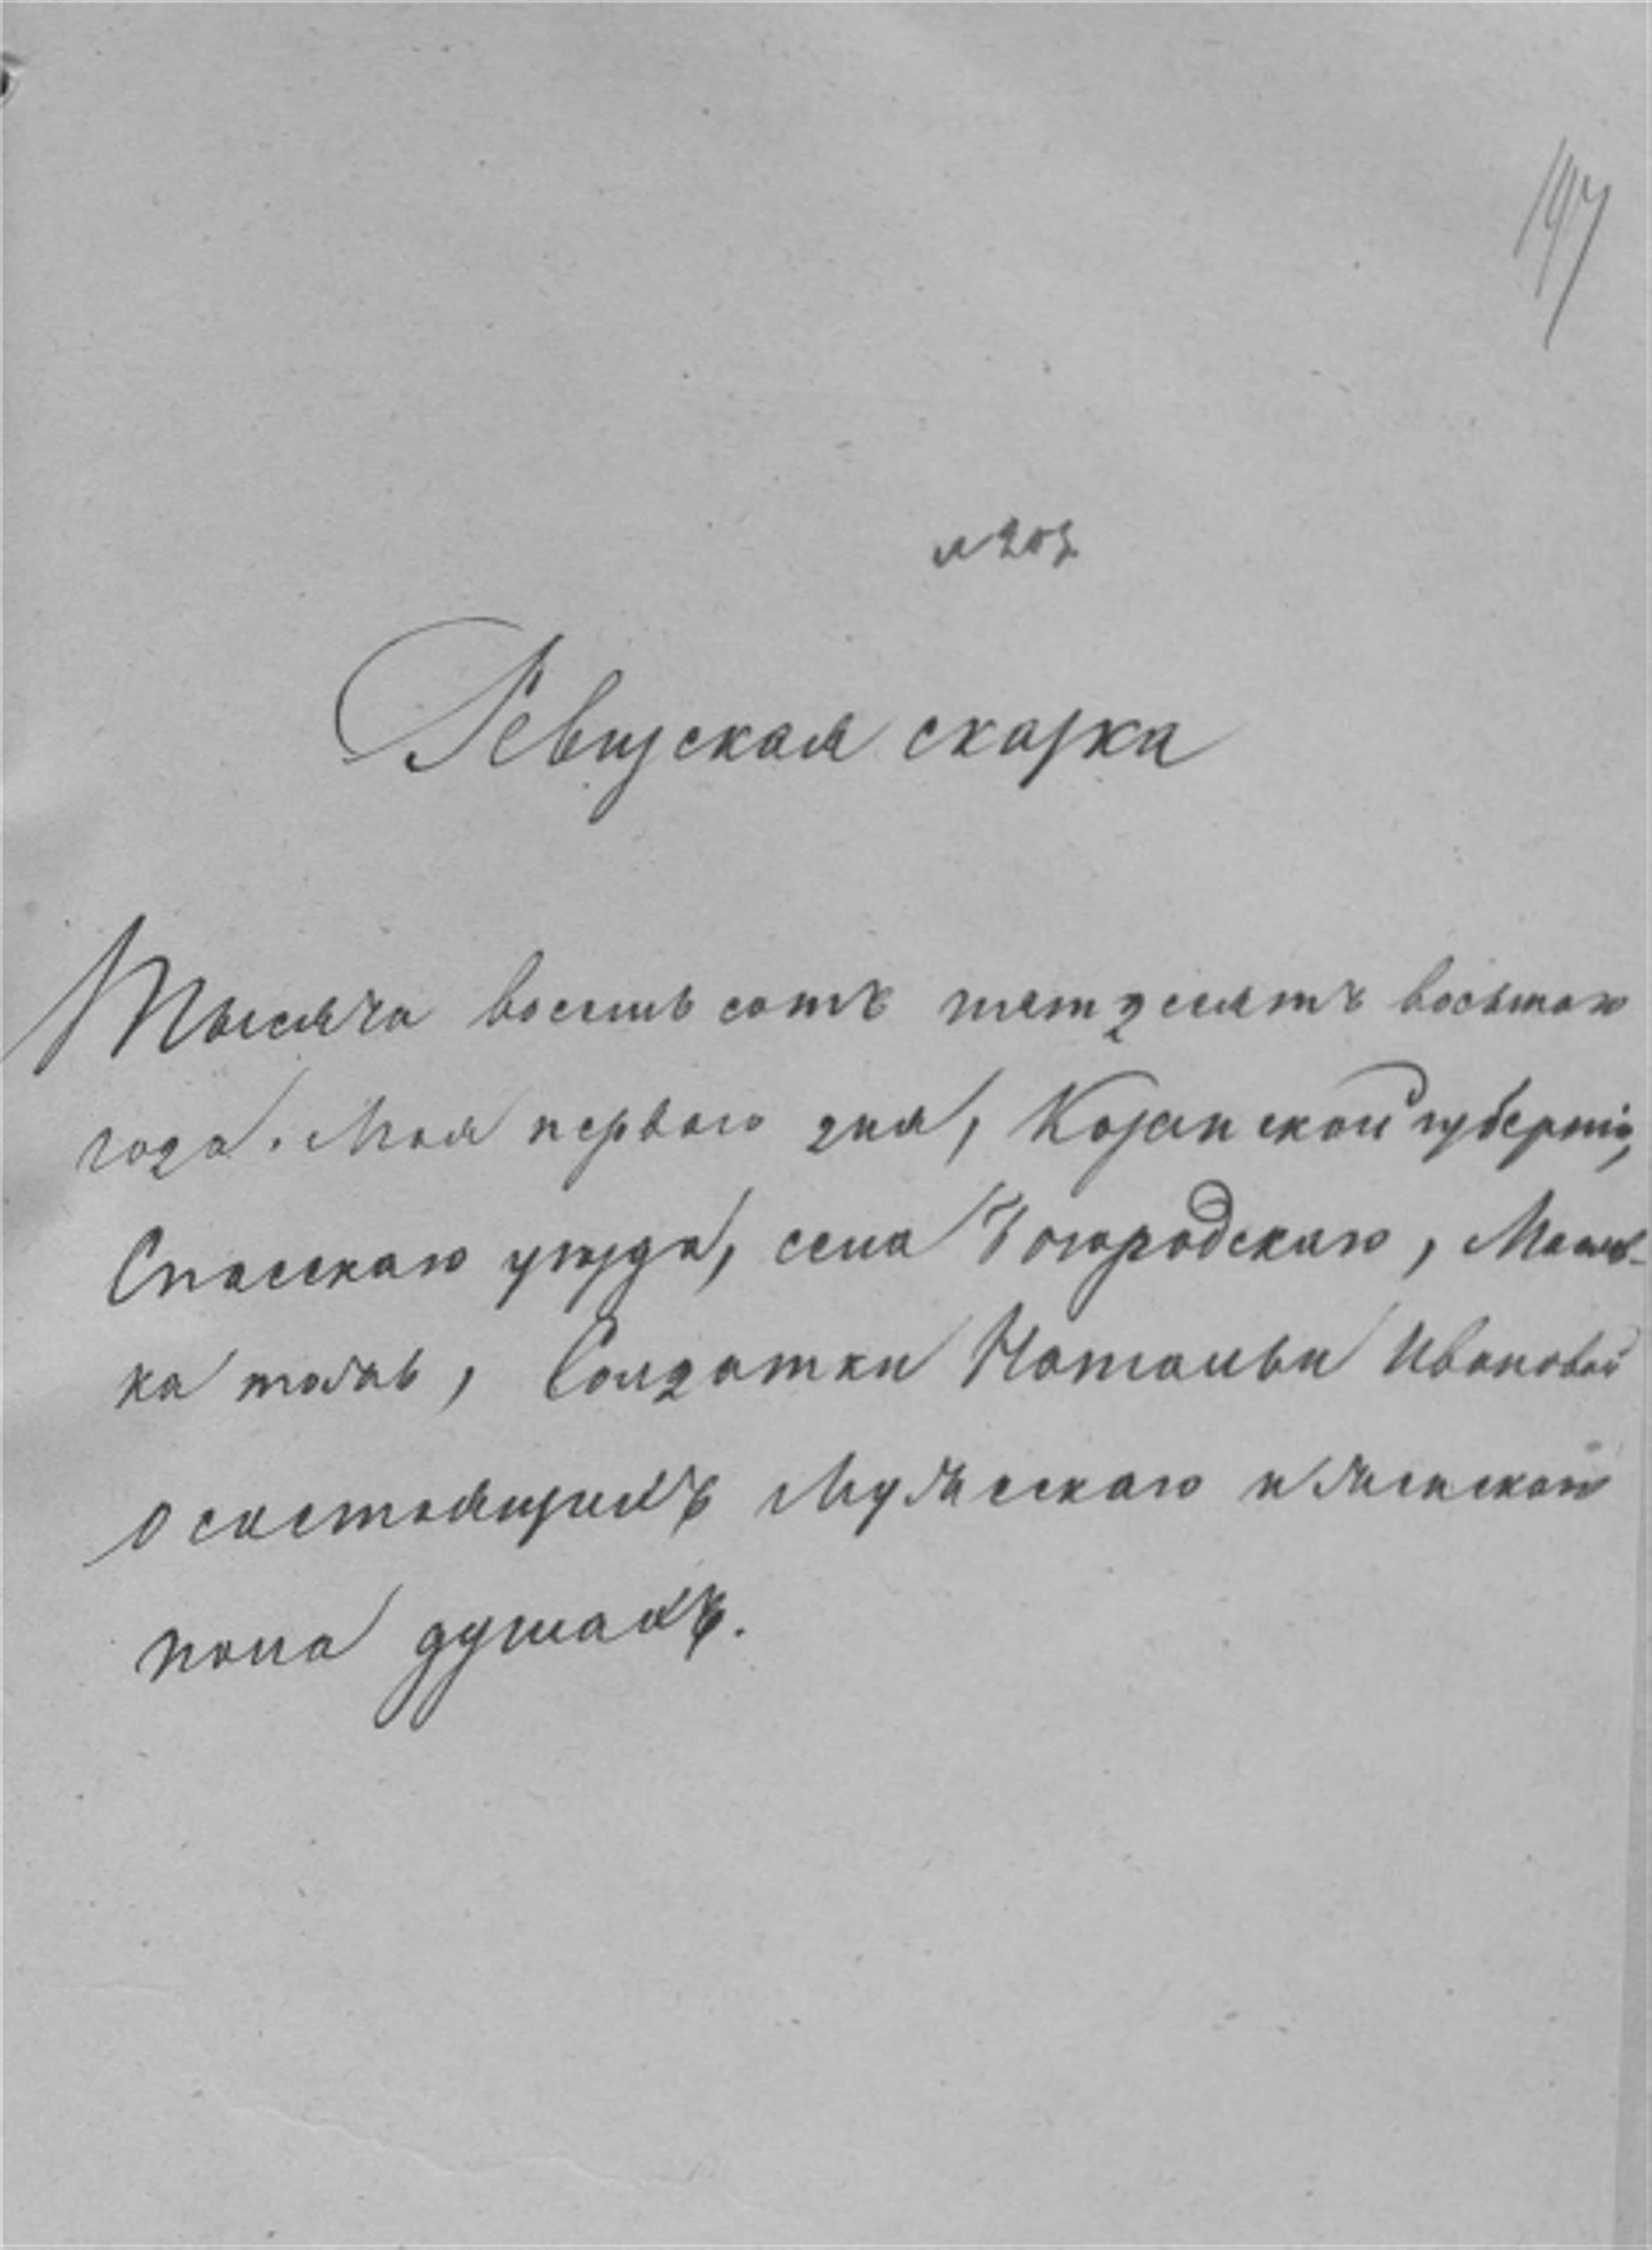 197
№ 203
Ревизская сказка
Тысяча восемь сотъ пятдесятъ восьмаго
года. Мая перваго дня, Казанской губерніи,
Спасскаго уѣзда, села Богородскаго,
ка тожъ, Солдатки Натальи Ивановой
о состоящихъ мужескаго и женскаго
пола душахъ.